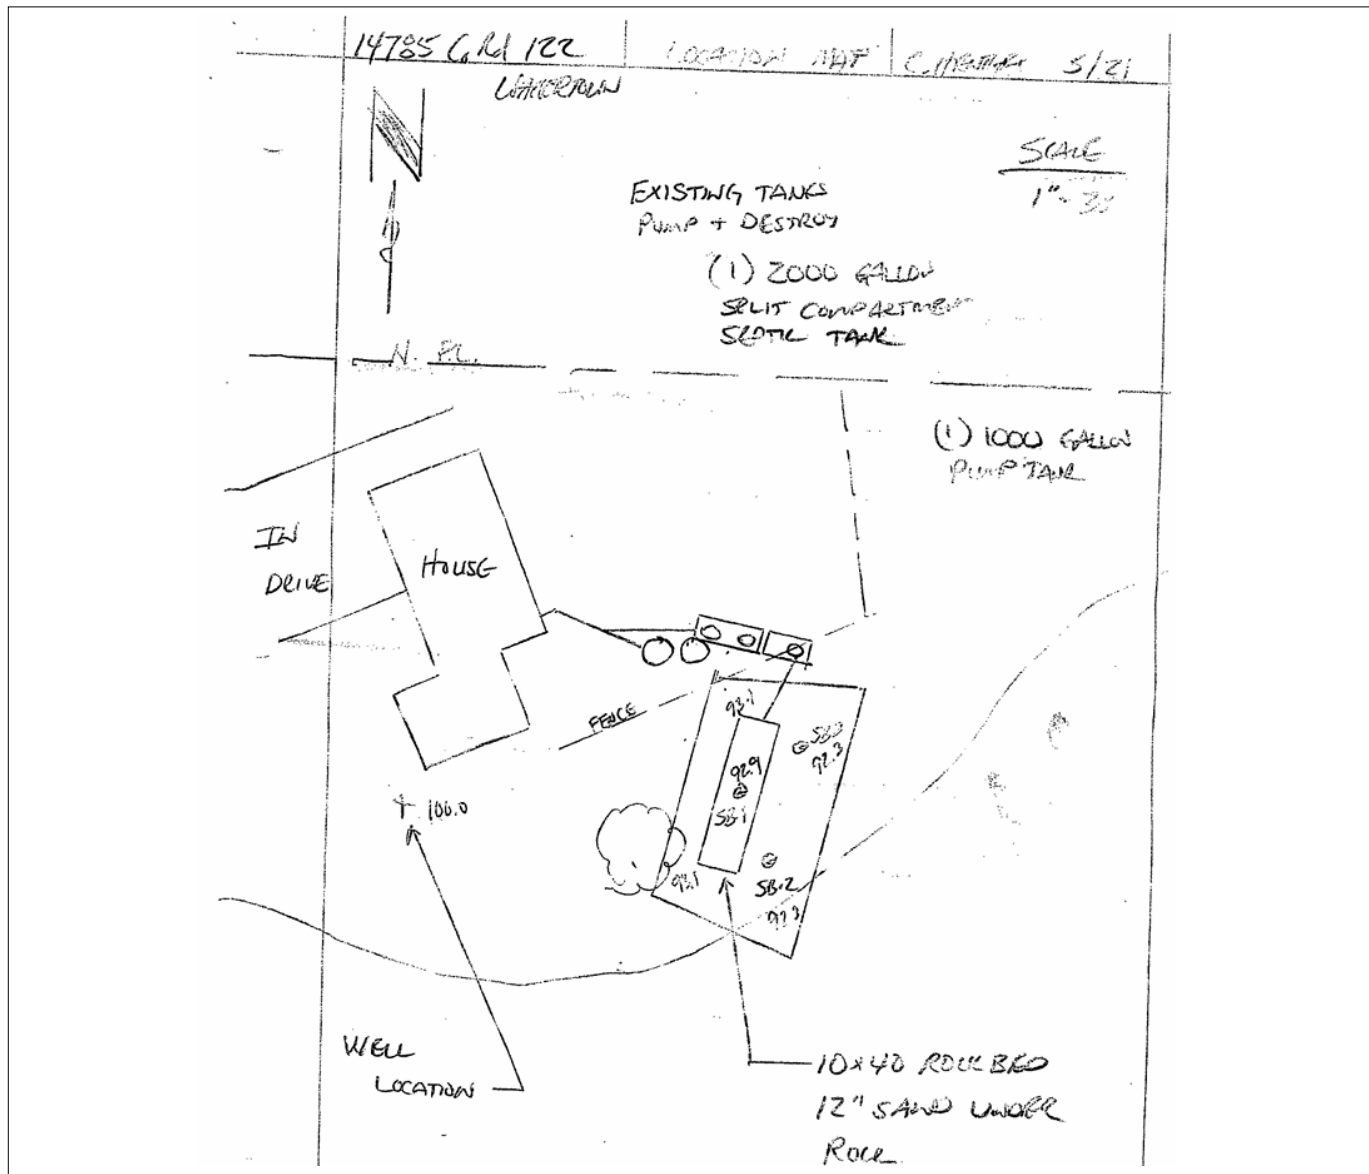 14785 C. Rd 122
LOCATION MAP
5/21
WATERTOWN
SCALE
EXISTING TANKS
PUMP + DESTROY
(1) 2000 GALLON
SPLIT COMPARTMENT
SEPTIC TANK
N. P.L.
(1) 1000 GALLON
PUMP TANK
IN
DRIVE
HOUSE
FENCE
93.1
92.3
92.9
SB-1
100.0
93.1
SB-2
92.3
WELL
LOCATION
10x40 ROCK BED
12" SAND UNDER
ROCK